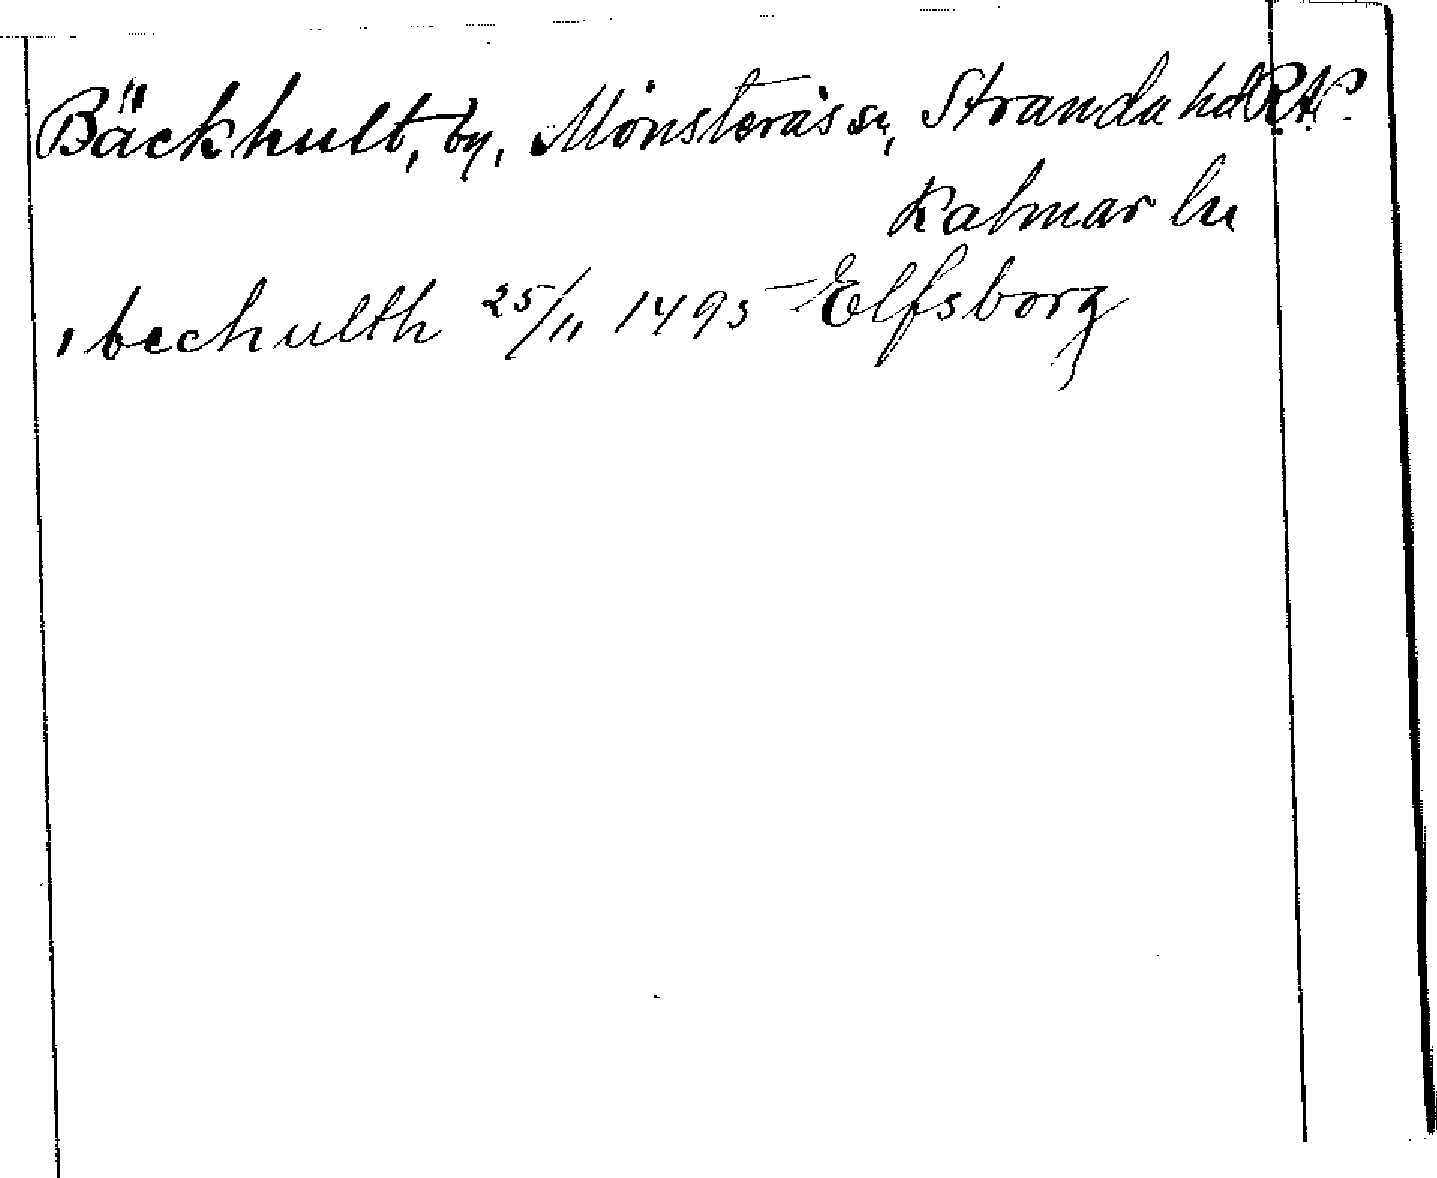 Bäckhult, by, Mönsterås sn, Stranda hd RAP.
Kalmar ln
, bechulth 25/11 1495 Elfsborg